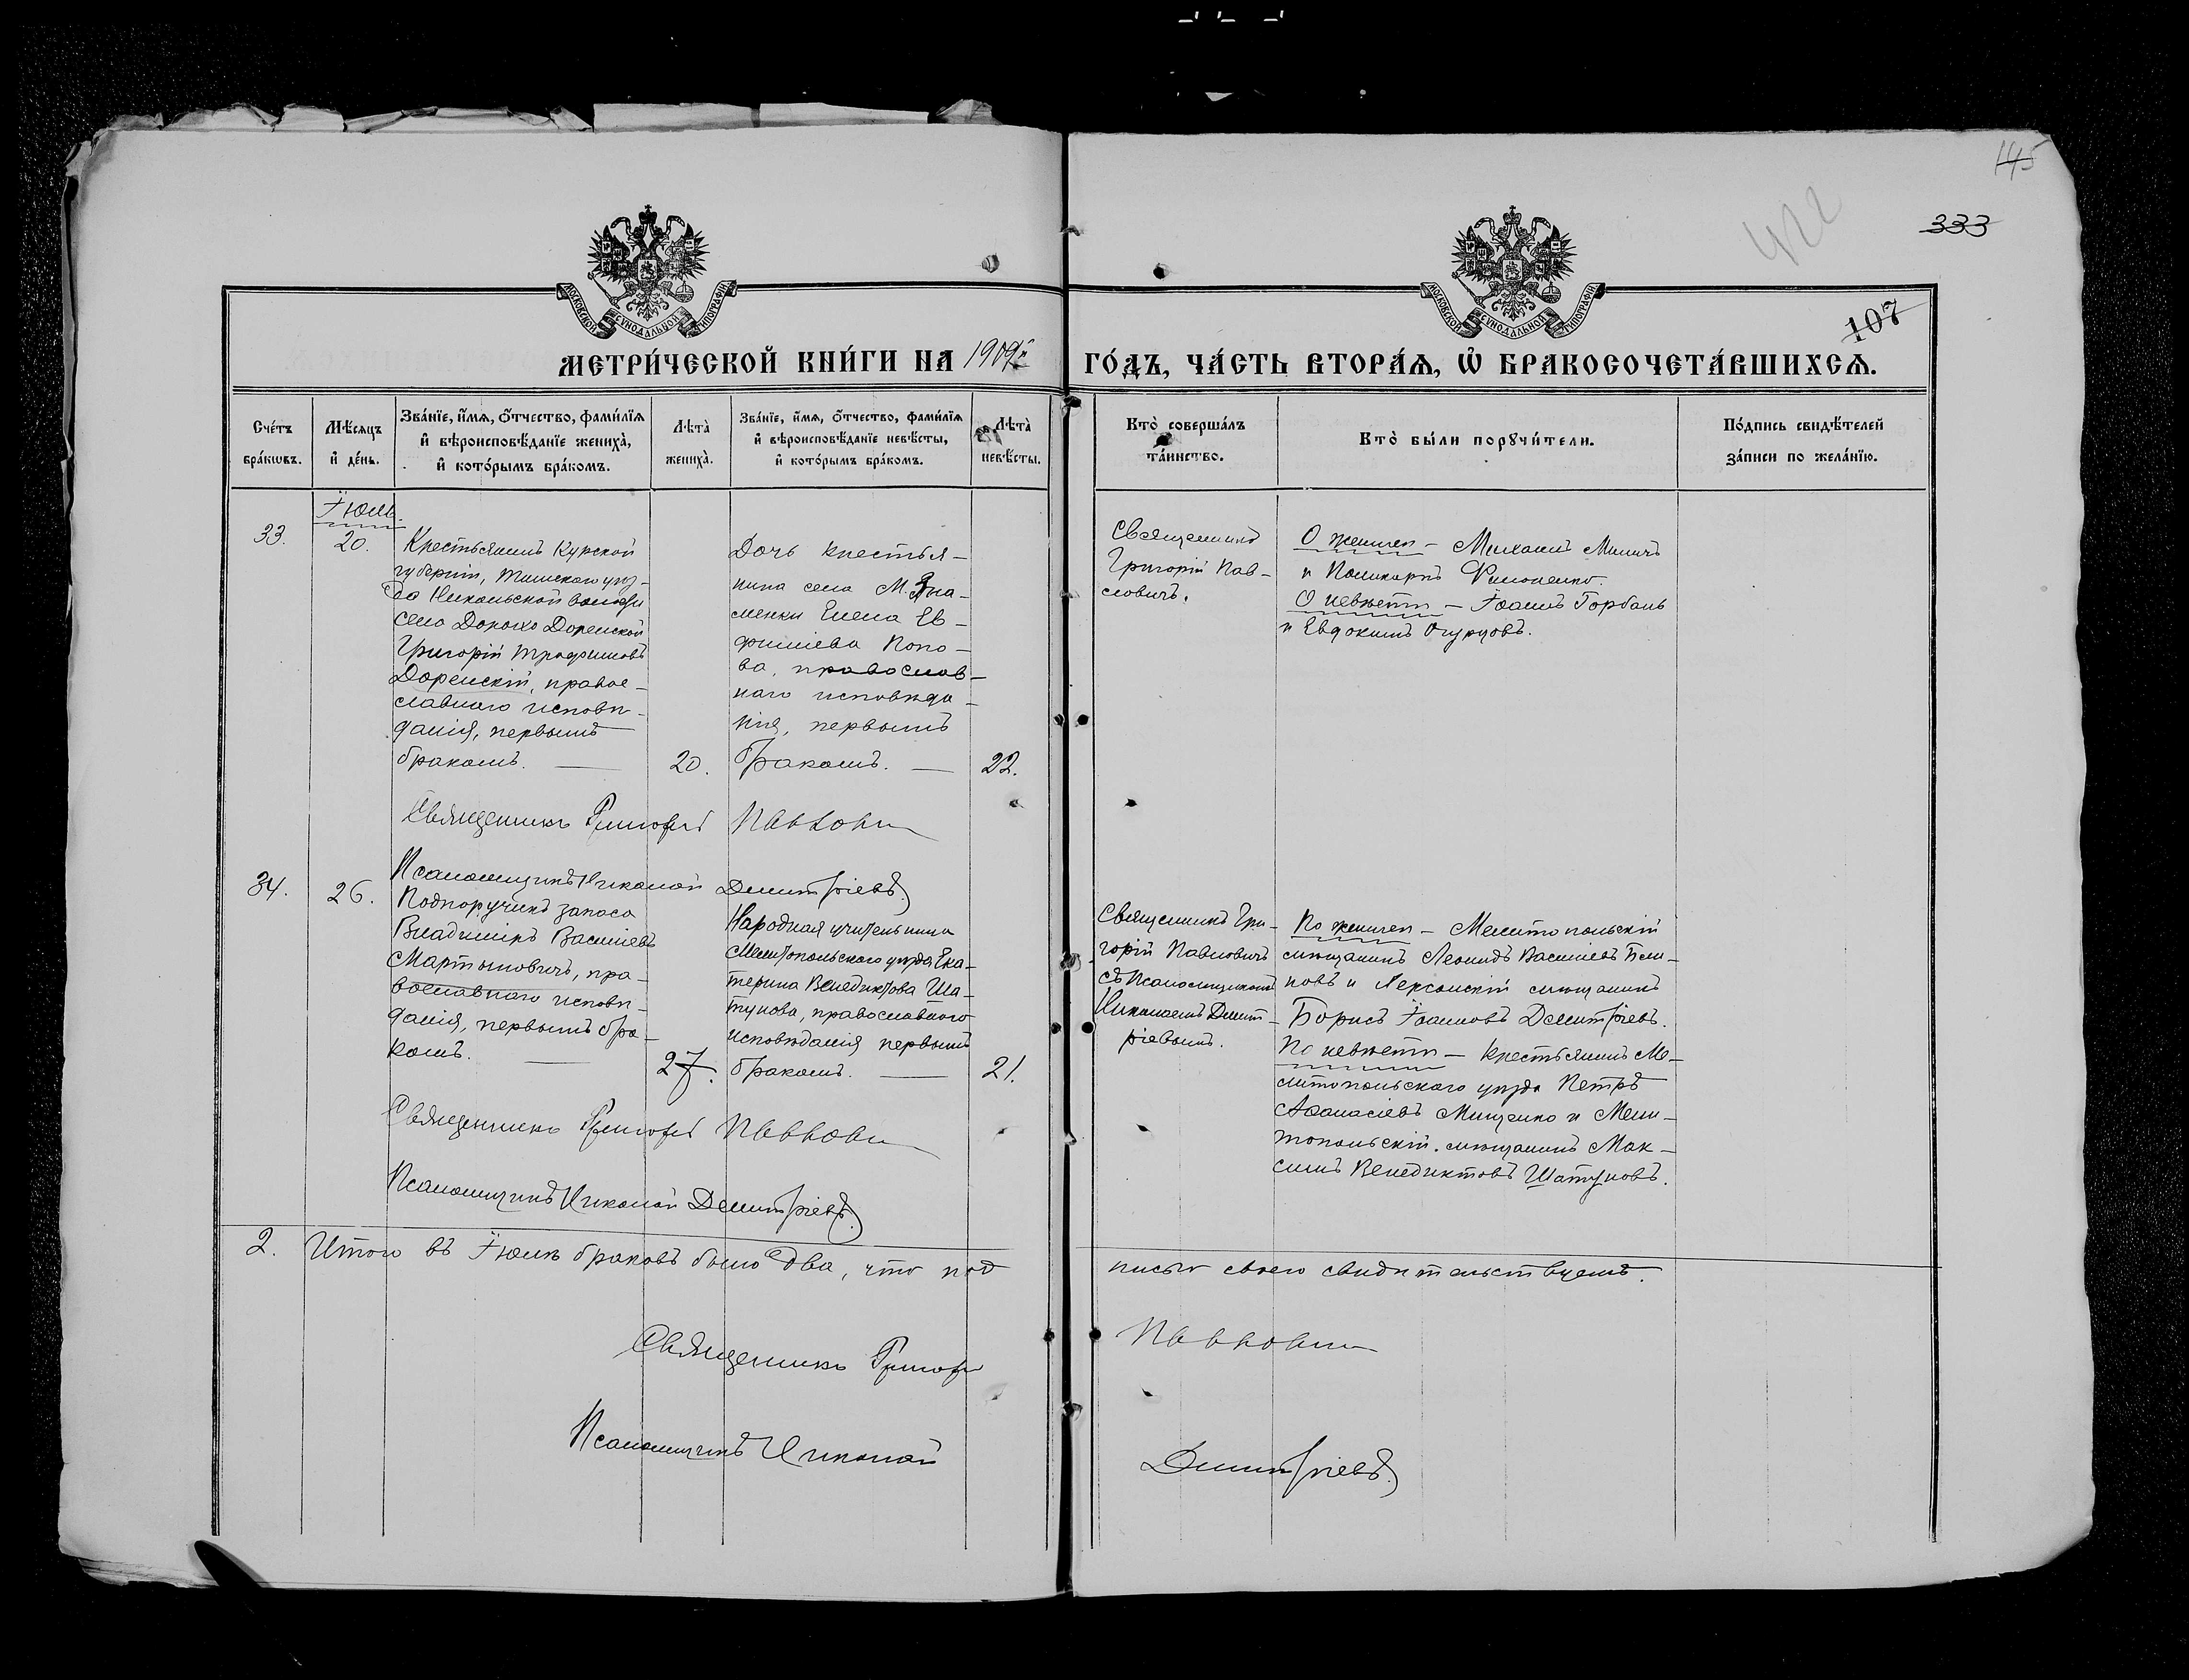 145
422
333
107
МОСКОВСКОЙ СѴНОДАЛЬНОЙ ТИПОГРАФІИ
МОСКОВСКОЙ СѴНОДАЛЬНОЙ ТИПОГРАФІИ
МЕТРИ́ЧЕСКОЙ КНИ́ГИ НА 1909й ГО́ДЪ, ЧА́СТЬ ВТОРА́Ѧ, Ѽ БРАКОСОЧЕТА́ВШИХСѦ.
Сче́тъ
бра́кѡвъ.
Мѣ́сѧцъ
и҆ де́нь.
Зва́нїе, и҆́мѧ, ѻ҆́тчество, фами́лїѧ
и҆ вѣроисповѣ́данїе жениха̀,
и҆ кото́рымъ бра́комъ.
Лѣта̀
жениха̀.
Зва́нїе, и҆́мѧ, ѻ҆́тчество, фами́лїѧ
и҆ вѣроисповѣ́данїе невѣ́сты,
и҆ кото́рымъ бра́комъ.
Лѣта̀
невѣ́сты.
Кто̀ соверша́лъ
та́инство.
Кто̀ бы́ли порꙋчи́тели.
По́дпись свидѣ́телей
за́писи по жела́нїю.
Іюль.
33.
20.
Крестьянинъ Курской
губерніи, Тимскаго уѣз-
да Никольской волости
села Дорохо Доренской
Григорій Трофимовъ
Доренскій, правос-
лавнаго исповѣ-
данія, первымъ
бракомъ.
20.
Дочь крестья-
нина села М. Зна-
менки Елена Ев-
фиміева Попо-
ва, православ-
наго исповѣда-
нія, первымъ
бракомъ.
22.
Священникъ
Григорій Пав-
ловичъ.
О женихѣ - Михаилъ Миничъ
и Поликарпъ Филоненко.
О невѣстѣ - Іоаннъ Горбань
и Евдокимъ Огурцовъ.
Священникъ Григорій Павловичъ
Псаломщикъ Николай Димитріевъ
34.
26.
Подпоручикъ запаса
Владиміръ Васильевъ
Мартыновичъ, пра-
вославнаго исповѣ-
данія, первымъ бра-
комъ.
27.
Народная учительница
Мелитопольскаго уѣзда Ека-
терина Венедиктова Ша-
тунова, православнаго
исповѣданія первымъ
бракомъ.
21.
Священникъ Гри-
горій Павловичъ
съ Псаломщикомъ
Николаемъ Димит-
ріевымъ.
По женихѣ - Мелитопольскій
мѣщанинъ Леонидъ Васильевъ Бли-
новъ и Херсонскій мѣщанинъ
Борисъ Іоанновъ Димитріевъ.
По невѣстѣ - крестьянинъ Ме-
литопольскаго уѣзда Петръ
Аѳанасіевъ Мищенко и Мели-
топольскій мѣщанинъ Мак-
симъ Венедиктовъ Шатуновъ.
Священникъ Григорій Павловичъ
Псаломщикъ Николай Димитріевъ.
2. Итого въ Іюлѣ браковъ было два, что под
писью своею свидѣтельствуемъ.
Священникъ Григорій Павловичъ
Псаломщикъ Николай Димитріевъ.